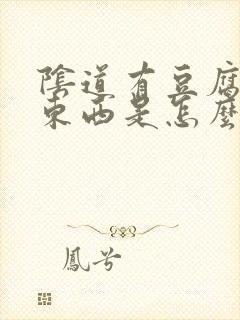 陰道有豆腐
東西是怎麼
鳳兮